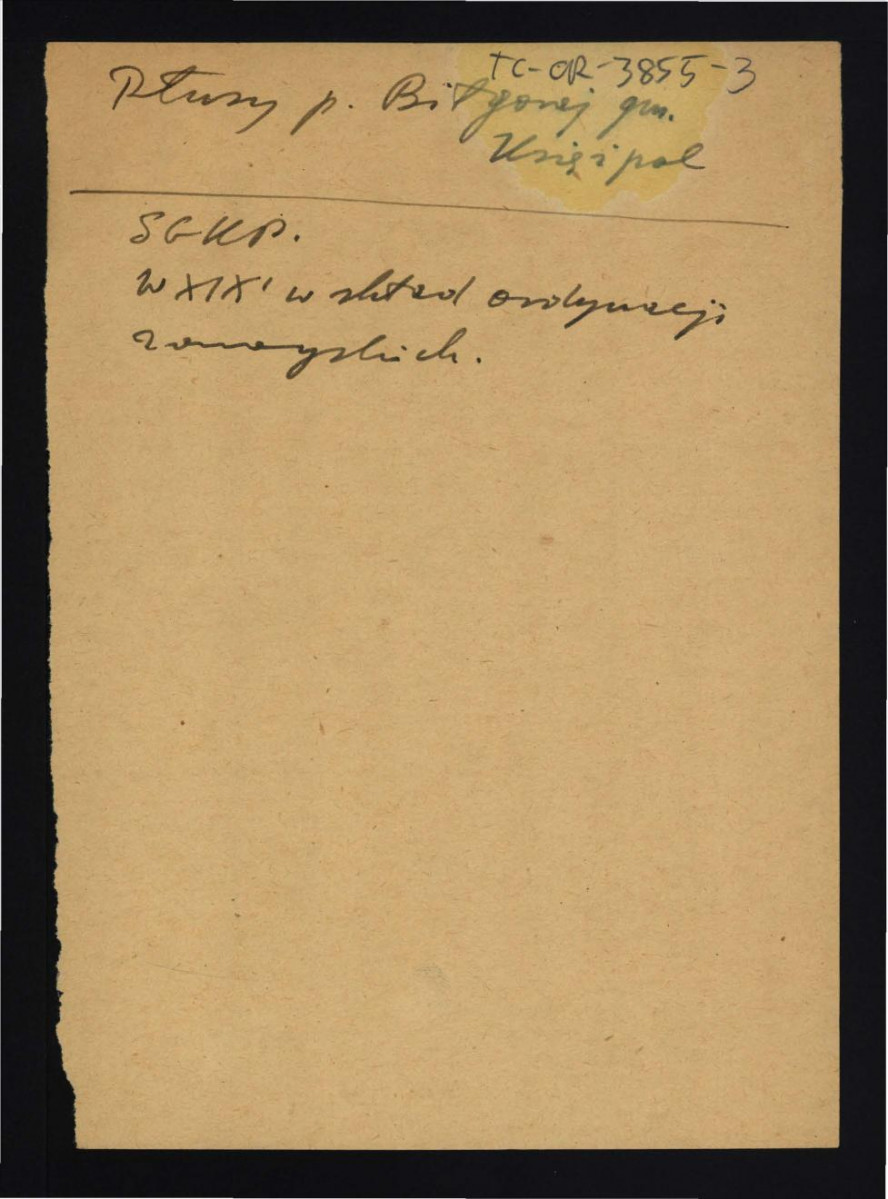 TC-OR-3855-3
Płusy p. Biłgoraj gm.
Księżpol
SGKP.
W XIX' w skład ordynacji
zamoyskich.